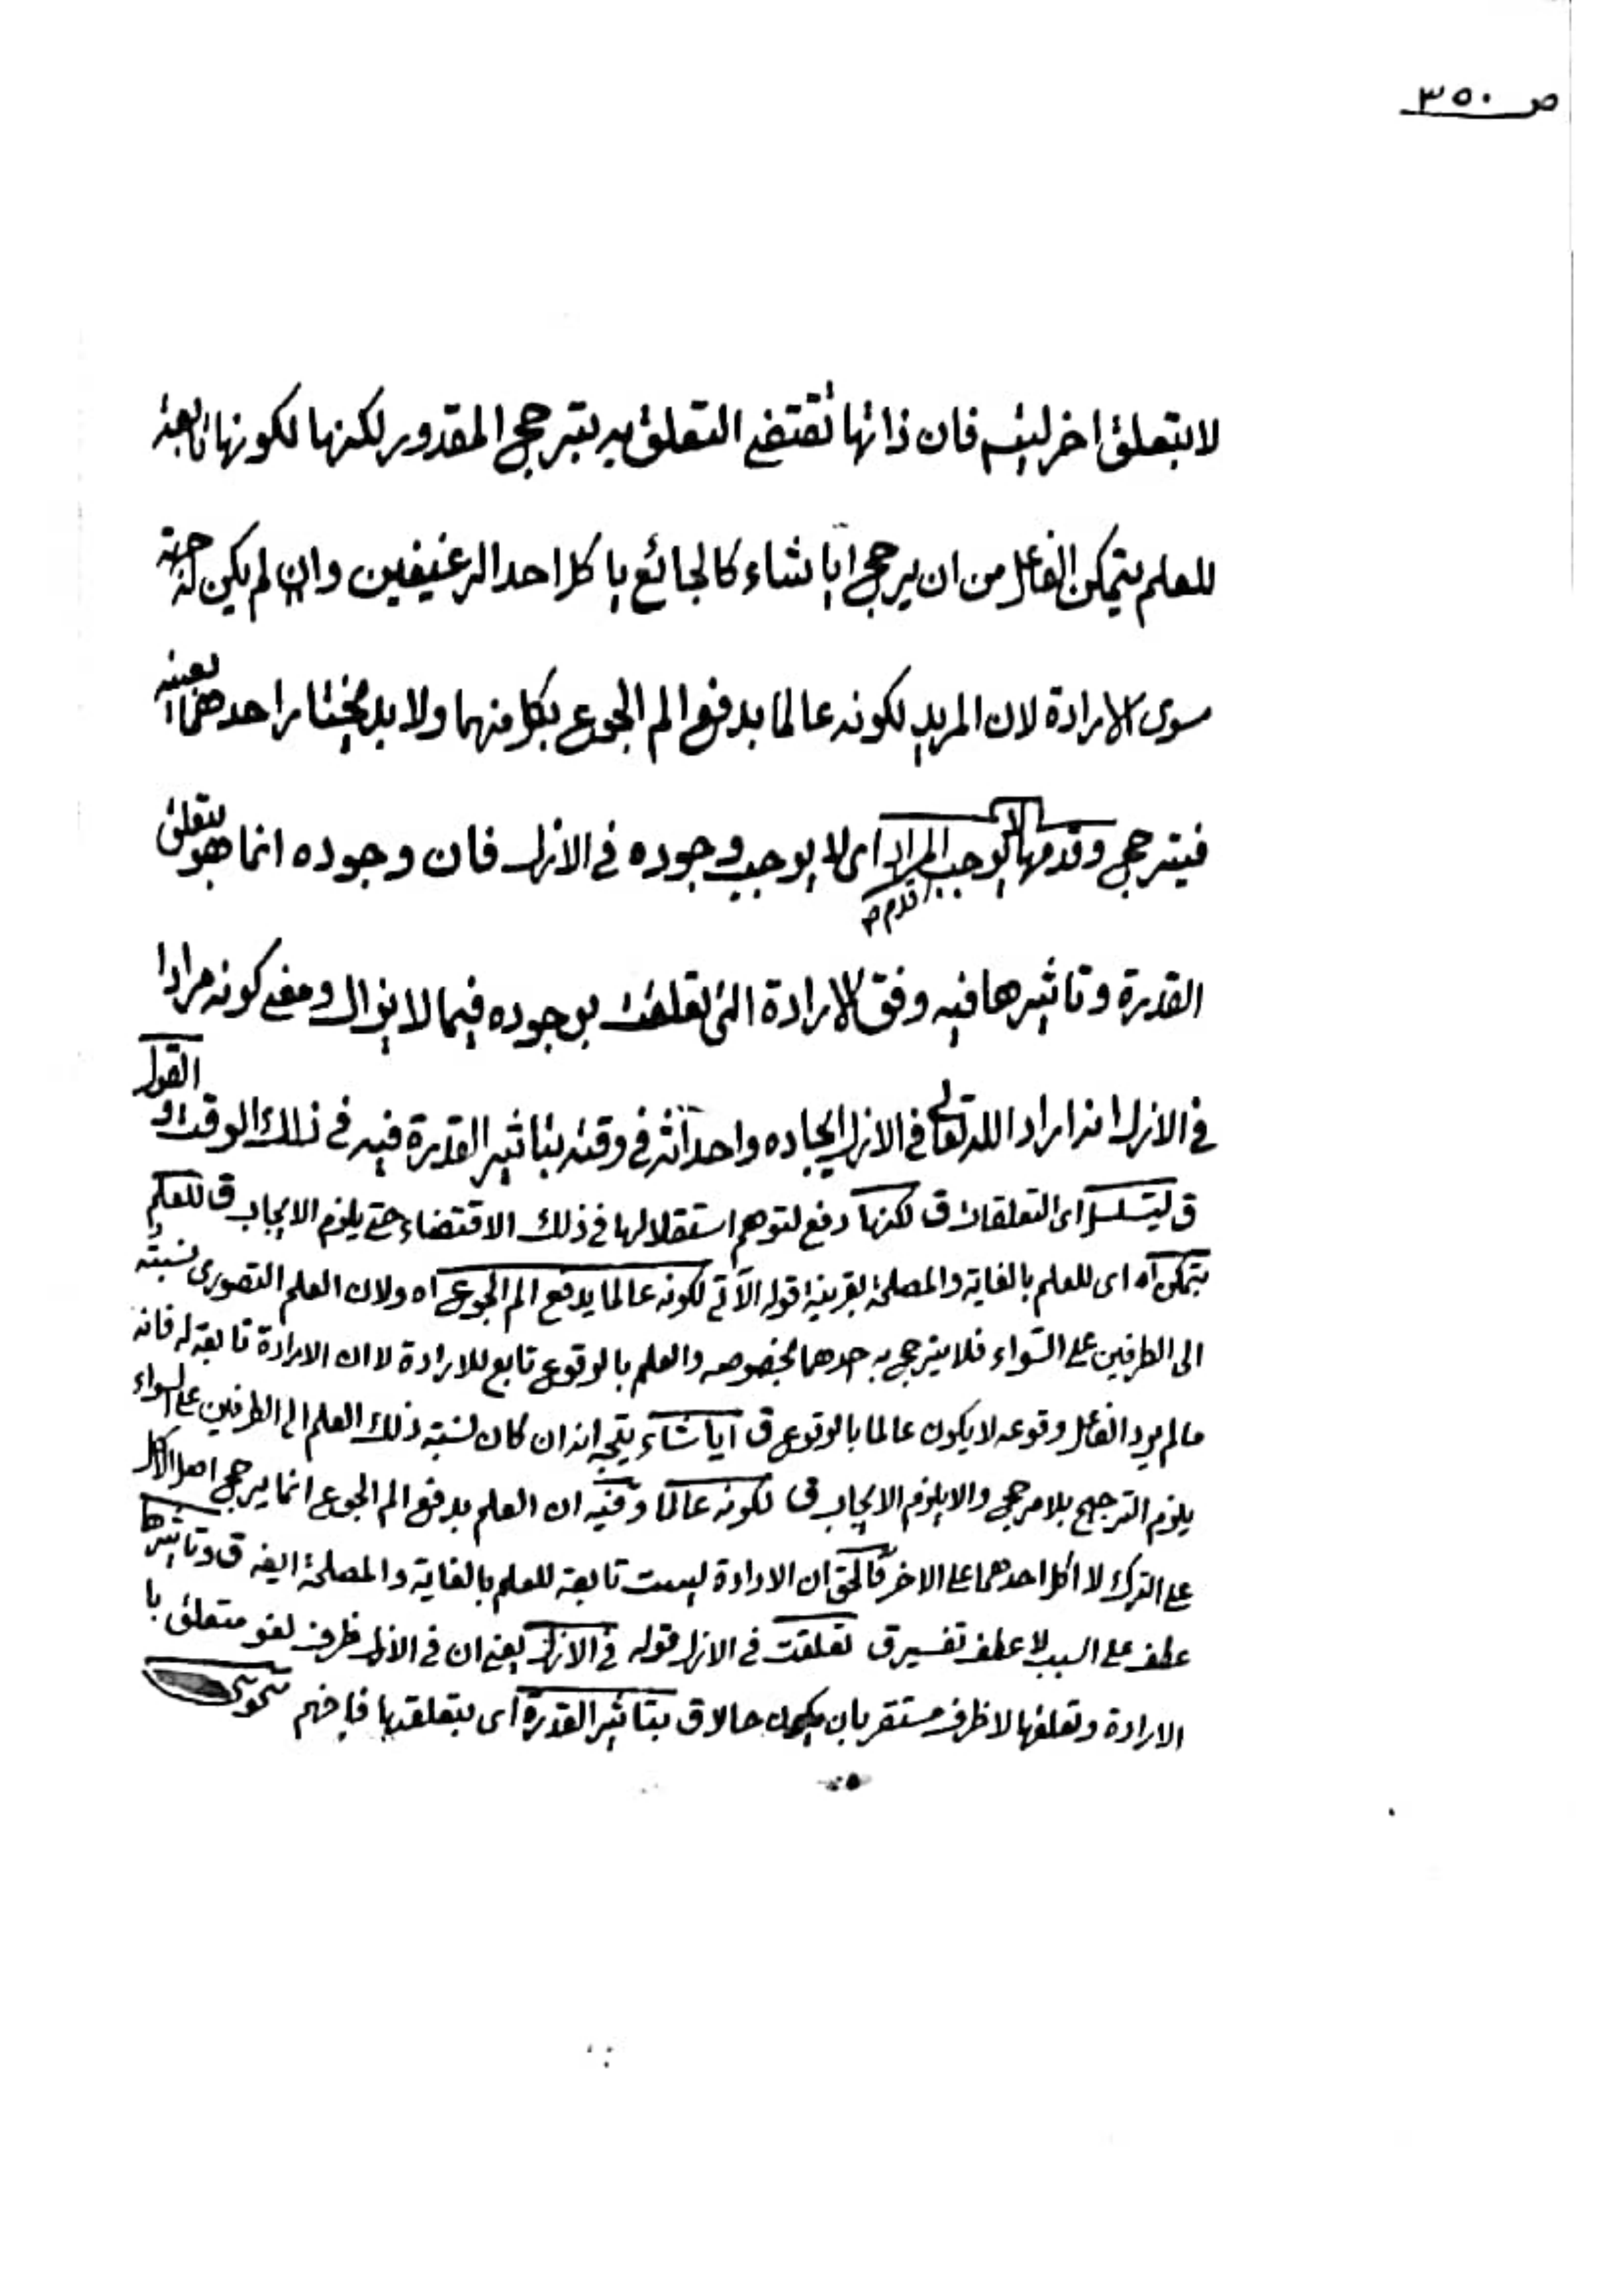 ص ٣٥٠
لا بتعلق اخر ليتسـ فان ذاتها تقتضي التعلق به بترجح المقدور لكنها لكونها تابعة
للعلم يتمكن الفاعل من ان يرجح ايا شاء كالجائع ياكل احد الرغيفين وان لم يكن له جهة
سوى الارادة لان المريد لكونه عالما بدفع الم الجوع بكل منهما ولا بد يختار احدهما بعينه
فيترجح وقدمها لا يوجب المراد اى لا يوجب وجوده فى الازل فان وجوده انما هو بتعلق
قدم
القدرة وتاثيرها فيه وفق الارادة التى تعلقت بوجوده فيما لا يزال ومعنى كونه مرادا
فى الازل انه اراد الله تعالى فى الازل ايجاده واحداثه فى وقته بتاثير القدرة فيه فى ذلك الوقت و القول
ق ليتسلسل اى التعلقات ق لكنها دفع لتوهم استقلالها فى ذلك الاقتضاء حتى يلزم الايجاب ق للعلم
يتمكن اه اى للعلم بالغاية والمصلحة بقرينة قوله الآتى لكونه عالما يدفع الم الجوع اه ولان العلم التصورى نسبته
الى الطرفين على السواء فلا يترجح به احدهما بخصوصه والعلم بالوقوع تابع للارادة لا ان الارادة تابعة له فانه
مالم يرد الفاعل وقوعه لا يكون عالما بالوقوع ق ايا شاء يتجه انه ان كان نسبته ذلك العلم الى الطرفين على السواء
يلزم الترجيح بلا مرجح والا يلزم الايجاب ق لكونه عالما وفيه ان العلم بدفع الم الجوع انما يرجح اصل الاكل
على الترك لا اكل احدهما على الاخر فالحق ان الارادة ليست تابعة للعلم بالغاية والمصلحة ايضه ق وتاثيرها
عطف على السبب لا عطف تفسير ق تعلقت فى الازل قوله فى الازل يعنى ان فى الازل ظرف لغو متعلق با
الارادة وتعلقها لا ظرف مستقر بان يكون حالا ق بتاثير القدرة اى بتعلقها فافهم